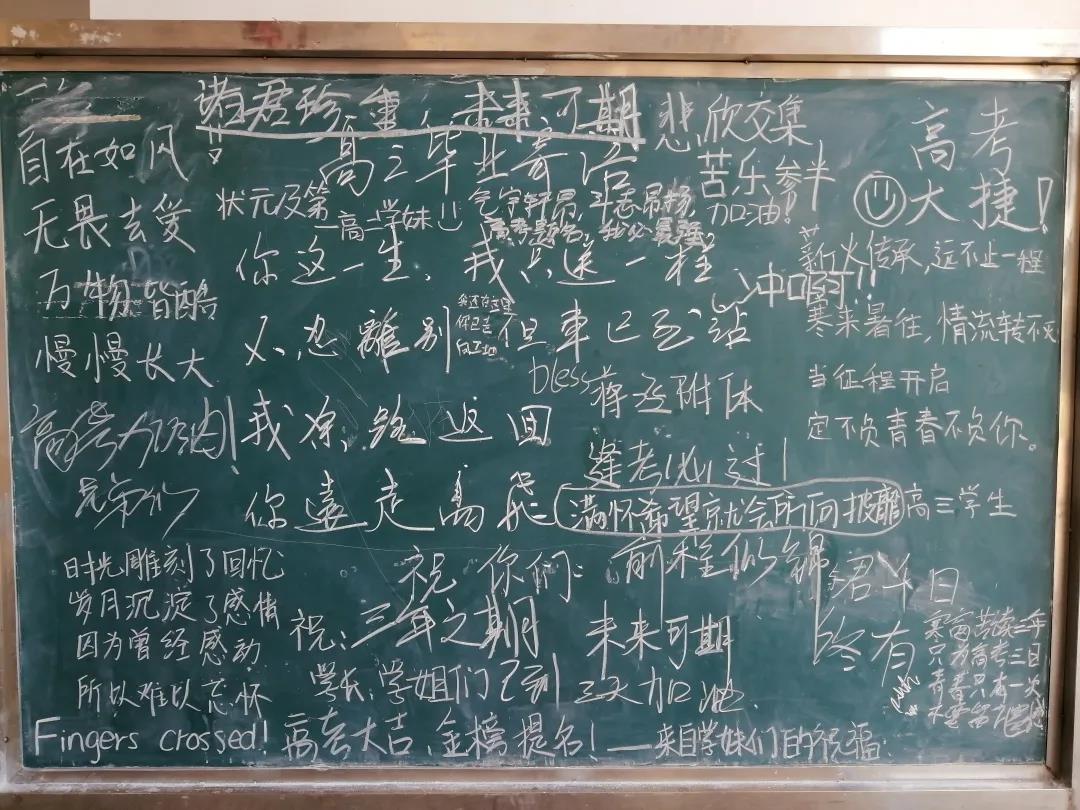 诸君珍重，未来可期
高三毕业寄语
悲欣交集
苦乐参半
加油！
高考
大捷！
自在如风
无畏去爱
万物皆酷
慢慢长大
高考加油！
兄弟们
状元及第
一高二学妹
气宇轩昂，斗志昂扬，
高考题名，我必最强
你这一生，我只送一程
不忍離别
但車已到站
我还在这里
你已走
bless
蒋丞附体
我原路返回
逢考必过！
你遠走高飛
满怀希望就会所向披靡
高三学生
冲啊!!
薪火传承，远不止一程
寒来暑往，情流转不火
当征程开启
定不负青春不负你。
时光雕刻了回忆
岁月沉淀了感情
因为曾经感动
所以难以忘怀
祝你们：
前程似锦
祝：三年之期
未来可期
终有
君半日
学长，学姐们已到
三天加油
寒窗苦读三年
只为高考三日
青春只有一次
不要留下遗憾
Fingers crossed!
高考大吉，金榜提名！——来自学妹们的祝福